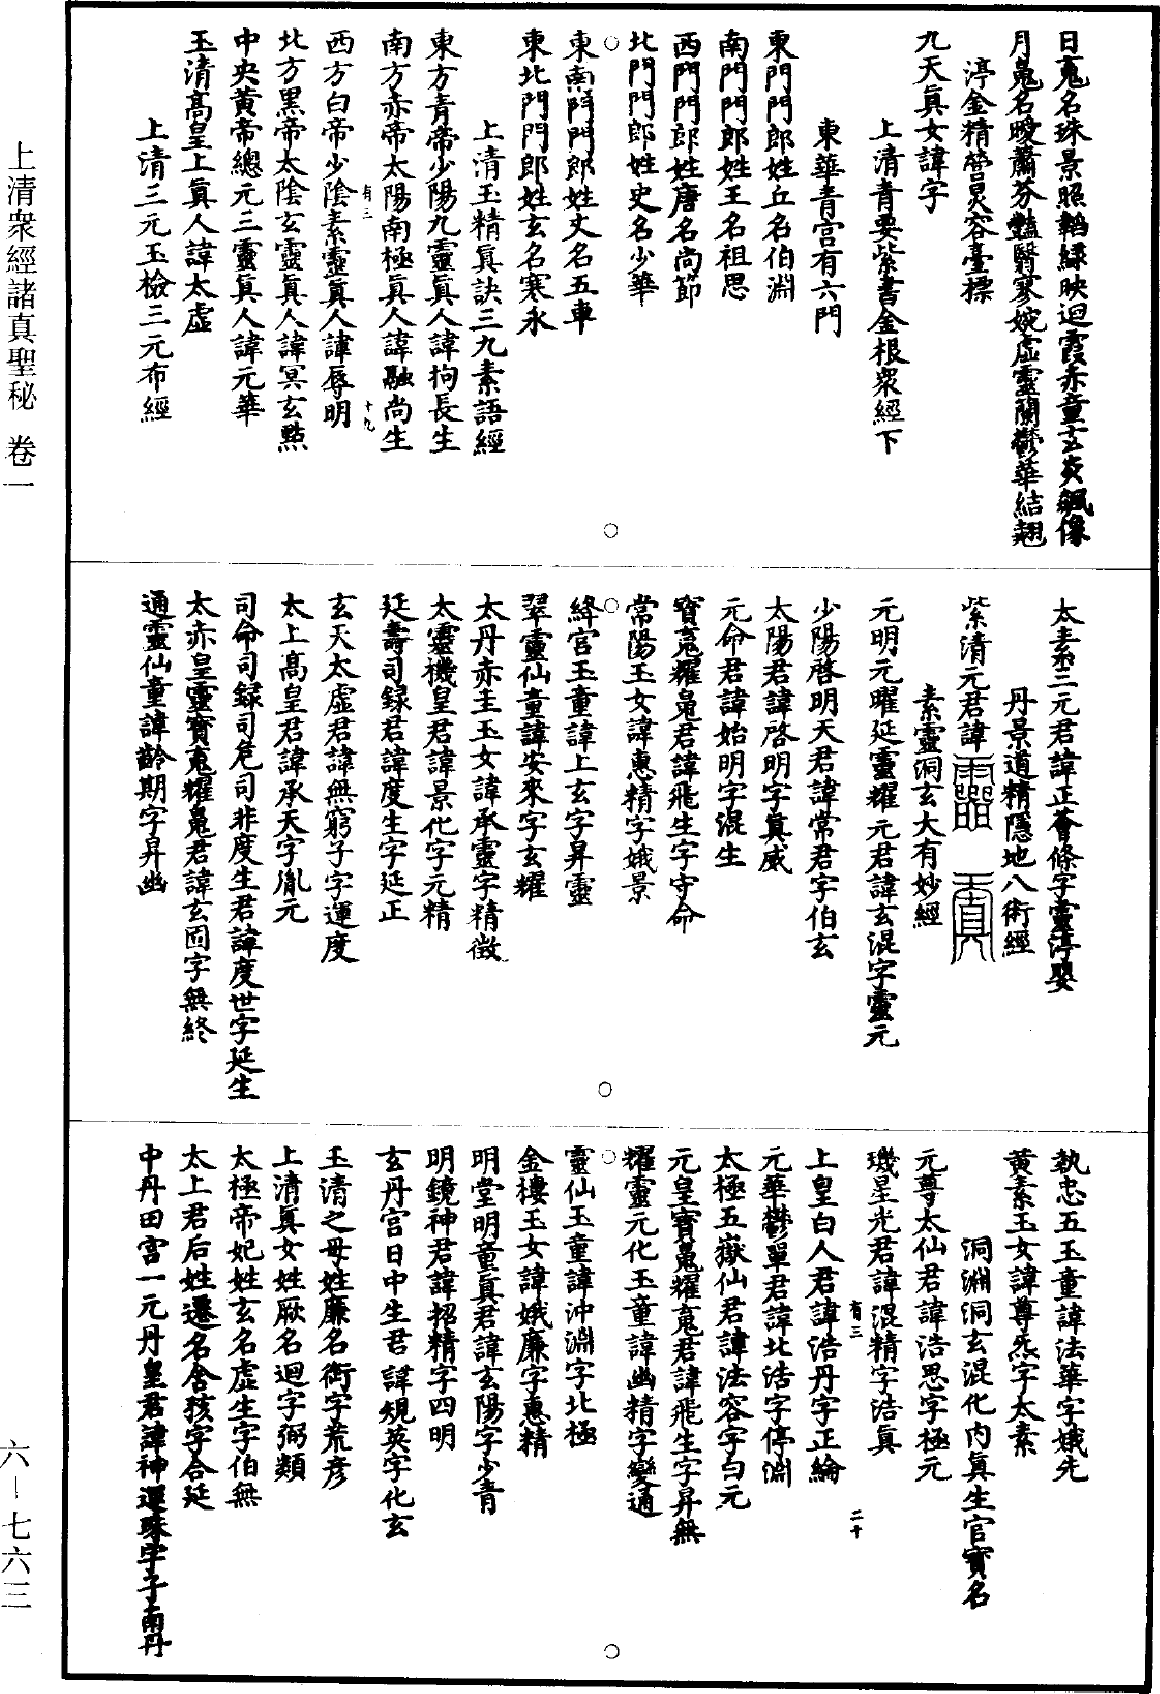 日魂名珠景照韜綠映迴霞赤童玄炎飆像
月魄名曖蕭芬豔翳寥婉虛靈蘭鬱華結翹
淳金精瑩炅容臺標
九天眞女諱字
上清青要紫書金根衆經下
東華青宫有六門
東門門郎姓丘名伯淵
南門門郎姓王名祖思
西門門郎姓唐名尚節
北門門郎姓史名少華
東南門門郎姓丈名五車
東北門門郎姓玄名寒氷
上清玉精眞訣三九素語經
東方青帝少陽九靈眞人諱拘長生
南方赤帝太陽南極眞人諱融尚生
有三 十九
西方白帝少陰素靈眞人諱辱明
北方黑帝太陰玄靈眞人諱冥玄㸃
中央黄帝總元三靈眞人諱元華
玉清髙皇上眞人諱太虛
上清三元玉檢三元布經
太素三元君諱正薈條字靈淳嬰
丹景道精隱地八術經
紫清元君諱
素靈洞玄大有妙經
元明元曜延靈耀元君諱玄混字靈元
少陽啓明天君諱常君字伯玄
太陽君諱啓明字眞威
元命君諱始明字混生
寶魂耀魄君諱飛生字守命
常陽玉女諱惠精字娥景
絳宫玉童諱上玄字昇靈
翠靈仙童諱安來字玄耀
太丹赤圭玉女諱承靈字精徵
太靈機皇君諱景化字元精
延壽司録君諱度生字延正
玄天太虛君諱無窮子字運度
太上髙皇君諱承天字胤元
司命司録司危司非度生君諱度世字延生
太赤皇靈寶魂耀魄君諱玄固字無終
通靈仙童諱齡期字昇幽
執忠五玉童諱法華字娥先
黄素玉女諱尊炁字太素
洞淵洞玄混化内眞生官寶名
元尊太仙君諱浩思字極元
璣星光君諱混精字浩眞
有三 二十
上皇白人君諱浩丹字正綸
元華鬱單君諱北浩字停淵
太極五嶽仙君諱法容字白元
元皇寶魄耀魂君諱飛生字昇無
耀靈元化玉童諱幽精字變通
靈仙玉童諱沖淵字北極
金樓玉女諱娥廉字惠精
明堂明董眞君諱玄陽字少青
明鏡神君諱招精字四明
玄丹宫日中生君諱規英字化玄
玉清之母姓廉名銜字荒彦
上清眞女姓厥名迴字弼類
太極帝妃姓玄名虛生字伯無
太上君后姓遷名含孩字合延
中丹田宫一元丹皇君諱神運珠字子南丹
上清衆經諸真聖秘 卷一
六—七六三